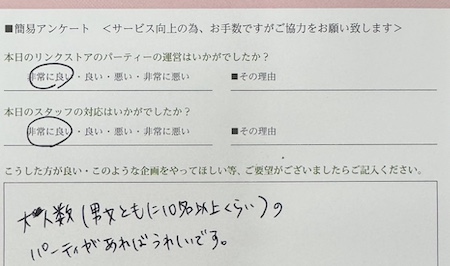 ■簡易アンケート ＜サービス向上の為、お手数ですがご協力をお願い致します＞
本日のリンクストアのパーティーの運営はいかがでしたか？
非常に良い・良い・悪い・非常に悪い ■その理由
本日のスタッフの対応はいかがでしたか？
非常に良い・良い・悪い・非常に悪い ■その理由
こうした方が良い・このような企画をやってほしい等、ご要望がございましたらご記入ください。
大人数（男女ともに10名以上くらい）の
パーティがあればうれしいです。